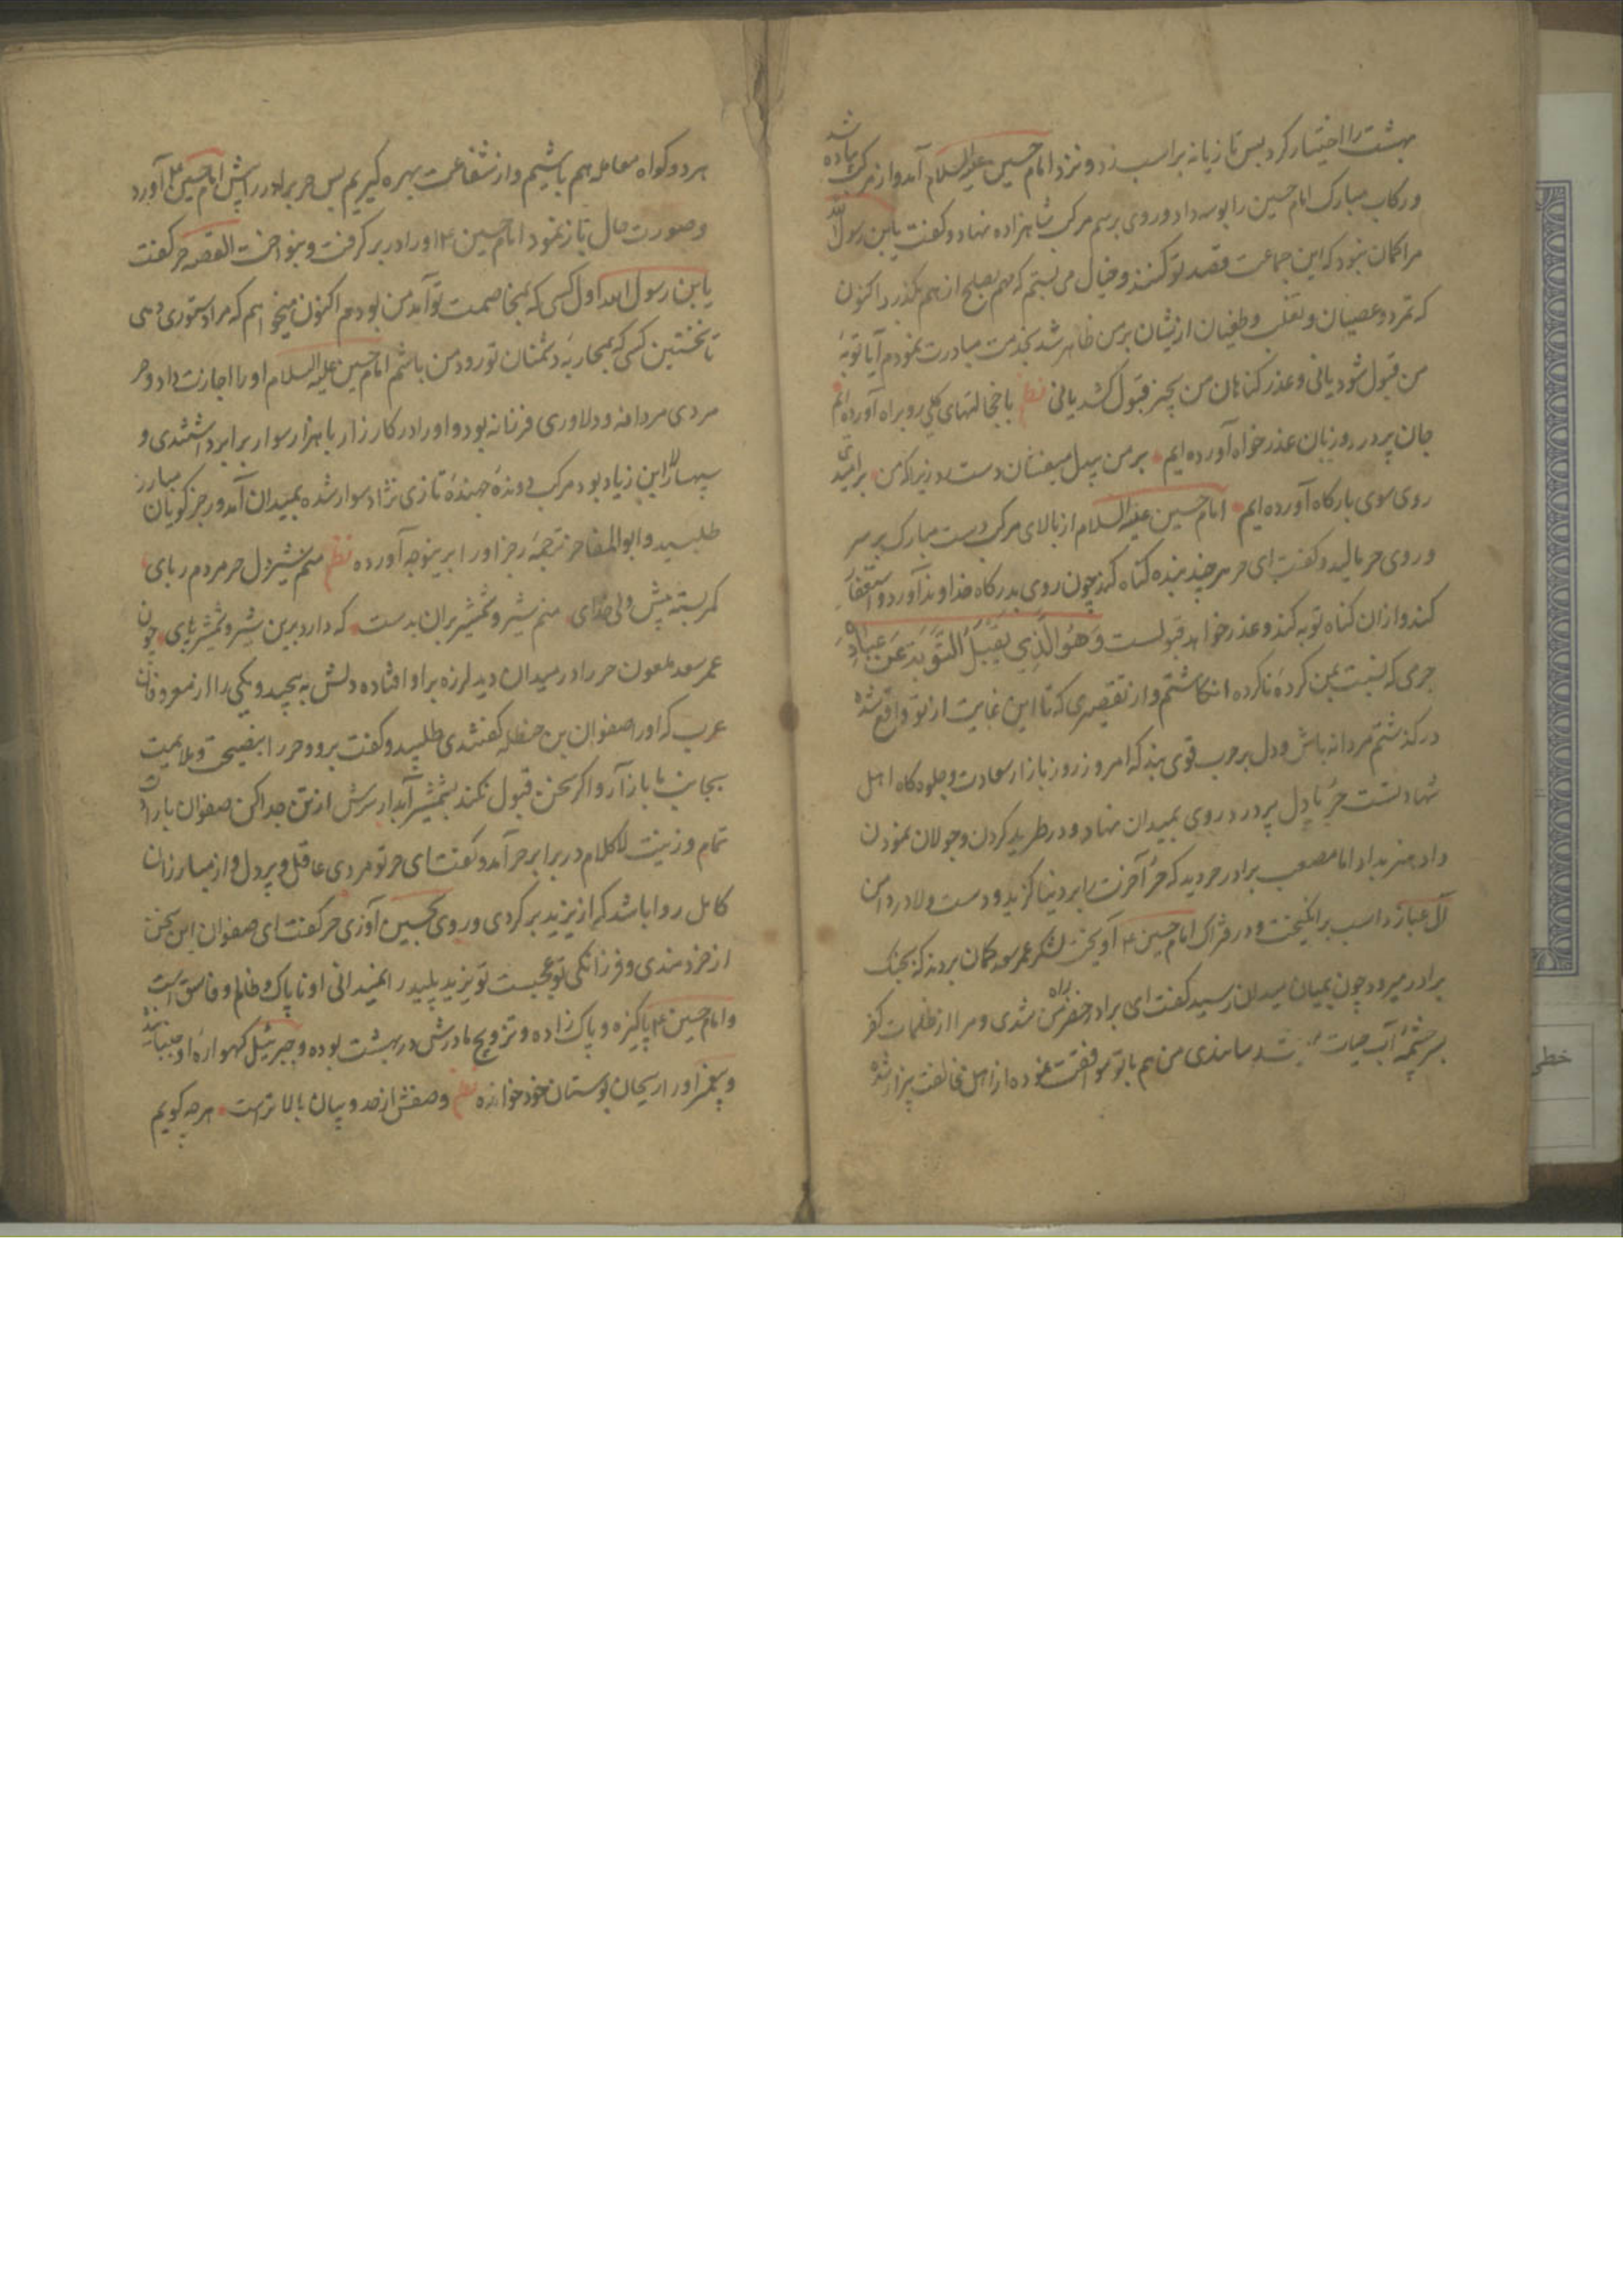 بهشت را اختیار کرد پس تازیانه بر اسب زد و نزد امام حسین علیه السلام آمد و از مرکب پیاده شد
و رکاب مبارک امام حسین را بوسه داد و روی بر سم مرکب شاهزاده نهاد و کفت یا بن رسول الله
مرا کمان نبود که این جماعت قصد تو کنند و خیال می بستم که مهم بصلح از هم بکذرد اکنون
که تمرد و عصیان و تغلب و طغیان ازیشان بر من ظاهر شد بخدمت مبادرت نمودم آیا توبهٔ
من قبول شود یانی و عذر کناهان من بچیز قبول کنند یانی نظم با خجالتهای کلی رو براه آورده ایم
جان پر درد و زبان عذر خواه آورده ایم بر من بیدل میفشان دست رد زیرا که من بر امیدی
روی سوی بارکاه آورده ایم امام حسین علیه السلام از بالای مرکب دست مبارک بر سر
و روی حر مالید و کفت ای حر هر چند بنده کناه کند چون روی بدرکاه خداوند آورد و استغفار
کند و ازان کناه توبه کند و عذر خواهد قبولست وَهُوَ الَّذِي يَقْبَلُ التَّوْبَةَ عَنْ عِبَادِهِ
جرمی که نسبت بمن کردهٔ ناکرده انکاشتم و از تقصیری که تا این غایت از تو واقع شده
در کذشتم مردانه باش و دل بر حرب قوی بند که امروز روز بازار سعادت و جلوه کاه اهل
شهادتست حر با دل پر درد روی بمیدان نهاد و در طرید کردن و جولان نمودن
داد هنر بداد اما مصعب برادر حر دید که حر آخرت را بر دنیا کزید و دست ولا در دامن
آل عبا زد اسب برانکیخت و در فتراک امام حسین ع آویخت لشکر عمر سعد کمان بردند که بجنک
برادر میرود چون بمیان میدان رسید کفت ای برادر خضر راه من شدی و مرا از ظلمات کفر
بسر چشمهٔ آب حیات رسانیدی من هم با تو موافقت نموده از اهل مخالفت بیزار شده
هر دو کواه معامله هم باشیم و از شفاعت بهره کیریم پس حر برادر را پیش امام حسین ع آورد
و صورت حال باز نمود امام حسین ع او را در بر کرفت و بنواخت القصه حر کفت
یا بن رسول الله اول کسی که بمخاصمت تو آمد من بودم اکنون میخواهم که مرا دستوری دهی
تا نخستین کسی که بمحاربهٔ دشمنان تو رود من باشم امام حسین علیه السلام او را اجازت داد و حر
مردی مردانه و دلاوری فرزانه بود و او را در کارزار با هزار سوار برابر داشتندی و
سپهسالار ابن زیاد بود مرکب دوندهٔ جهندهٔ تازی نژاد سوار شده بمیدان آمد و رجز کویان مبارز
طلبید و ابو المفاخر ترجمهٔ رجز او را برینوجه آورده نظم منم شیر دل حر مردم ربای
کمر بسته پیش ولی خدای منم شیر و شمشیر بران بدست که دارد برین شیر و شمشیر پای چون
عمر سعد ملعون حر را در میدان دید لرزه بر او افتاده دلش به پیچید و یکی را از معروفان
عرب که او را صفوان بن حنظله کفتندی طلبید و کفت برو و حر را بنصیحت و ملایمت
بجانب ما باز آر و اکر سخن قبول نکند بشمشیر آبدار سرش از تن جدا کن صفوان با رای
تمام و زینت لا کلام در برابر حر آمد و کفت ای حر تو مردی عاقل و پر دل و از مبارزان
کامل روا باشد که از یزید بر کردی و روی بحسین آوری حر کفت ای صفوان این سخن
از خردمندی و فرزانکی تو عجبست تو یزید پلید را نمیدانی او ناپاک و ظالم و فاسق است
و امام حسین ع پاکیزه و پاک زاده و تزویج مادرش در بهشت بوده و جبرئیل کهوارهٔ او جنبانیده
و پیغمبر او را ریحان بوستان خود خوانده نظم وصفش از حد و بیان بالاترست هر چه کویم
خطی